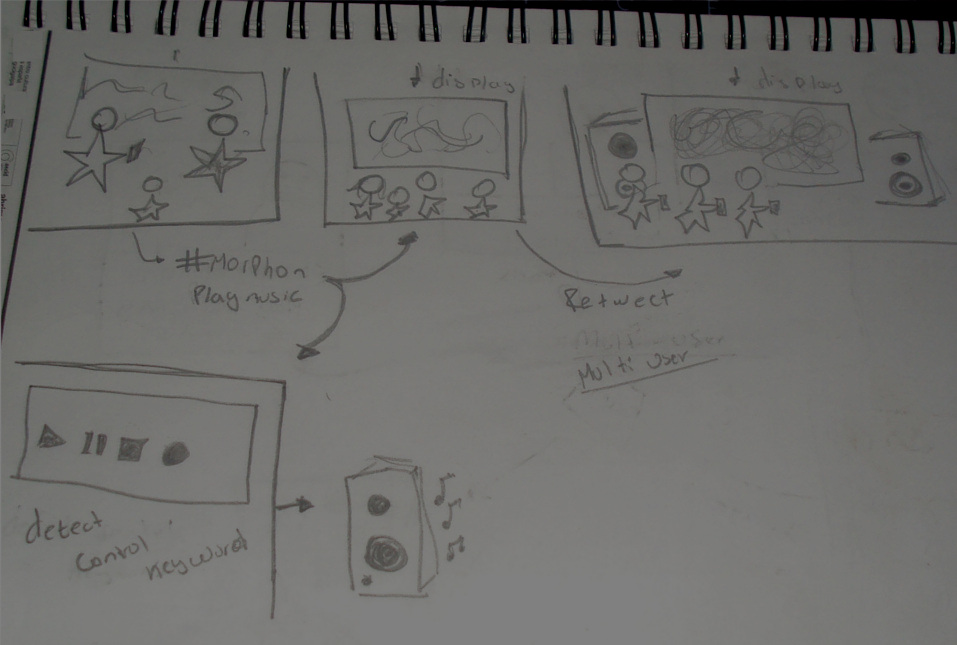 display
display
#Morphon
Play music
Retweet
Multi user
Multi user
detect
control
keyword